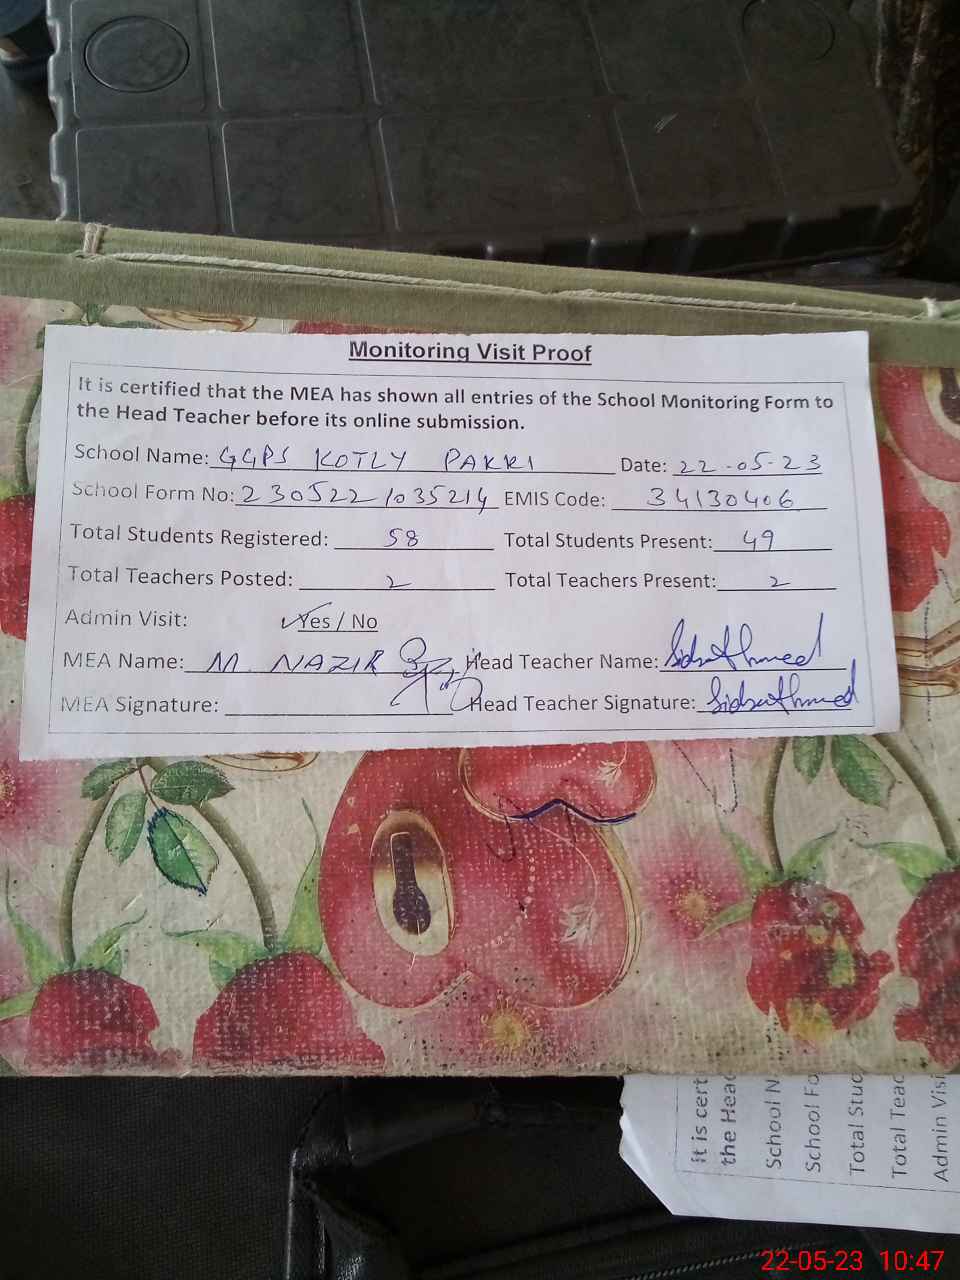 Monitoring Visit Proof
It is certified that the MEA has shown all entries of the School Monitoring Form to
the Head Teacher before its online submission.
School Name: GGPS KOTLY PAKKI Date: 22-05-23
School Form No: 230522 1035214 EMIS Code: 34130406
Total Students Registered: 58 Total Students Present: 49
Total Teachers Posted: 2 Total Teachers Present: 2
Admin Visit: Yes / No
MEA Name: M. NAZIR Head Teacher Name: SidraAhmed
MEA Signature: Head Teacher Signature: SidraAhmed
It is cert
the Head
School N
School Fo
Total Stud
Total Teac
Admin Visi
22-05-23 10:47